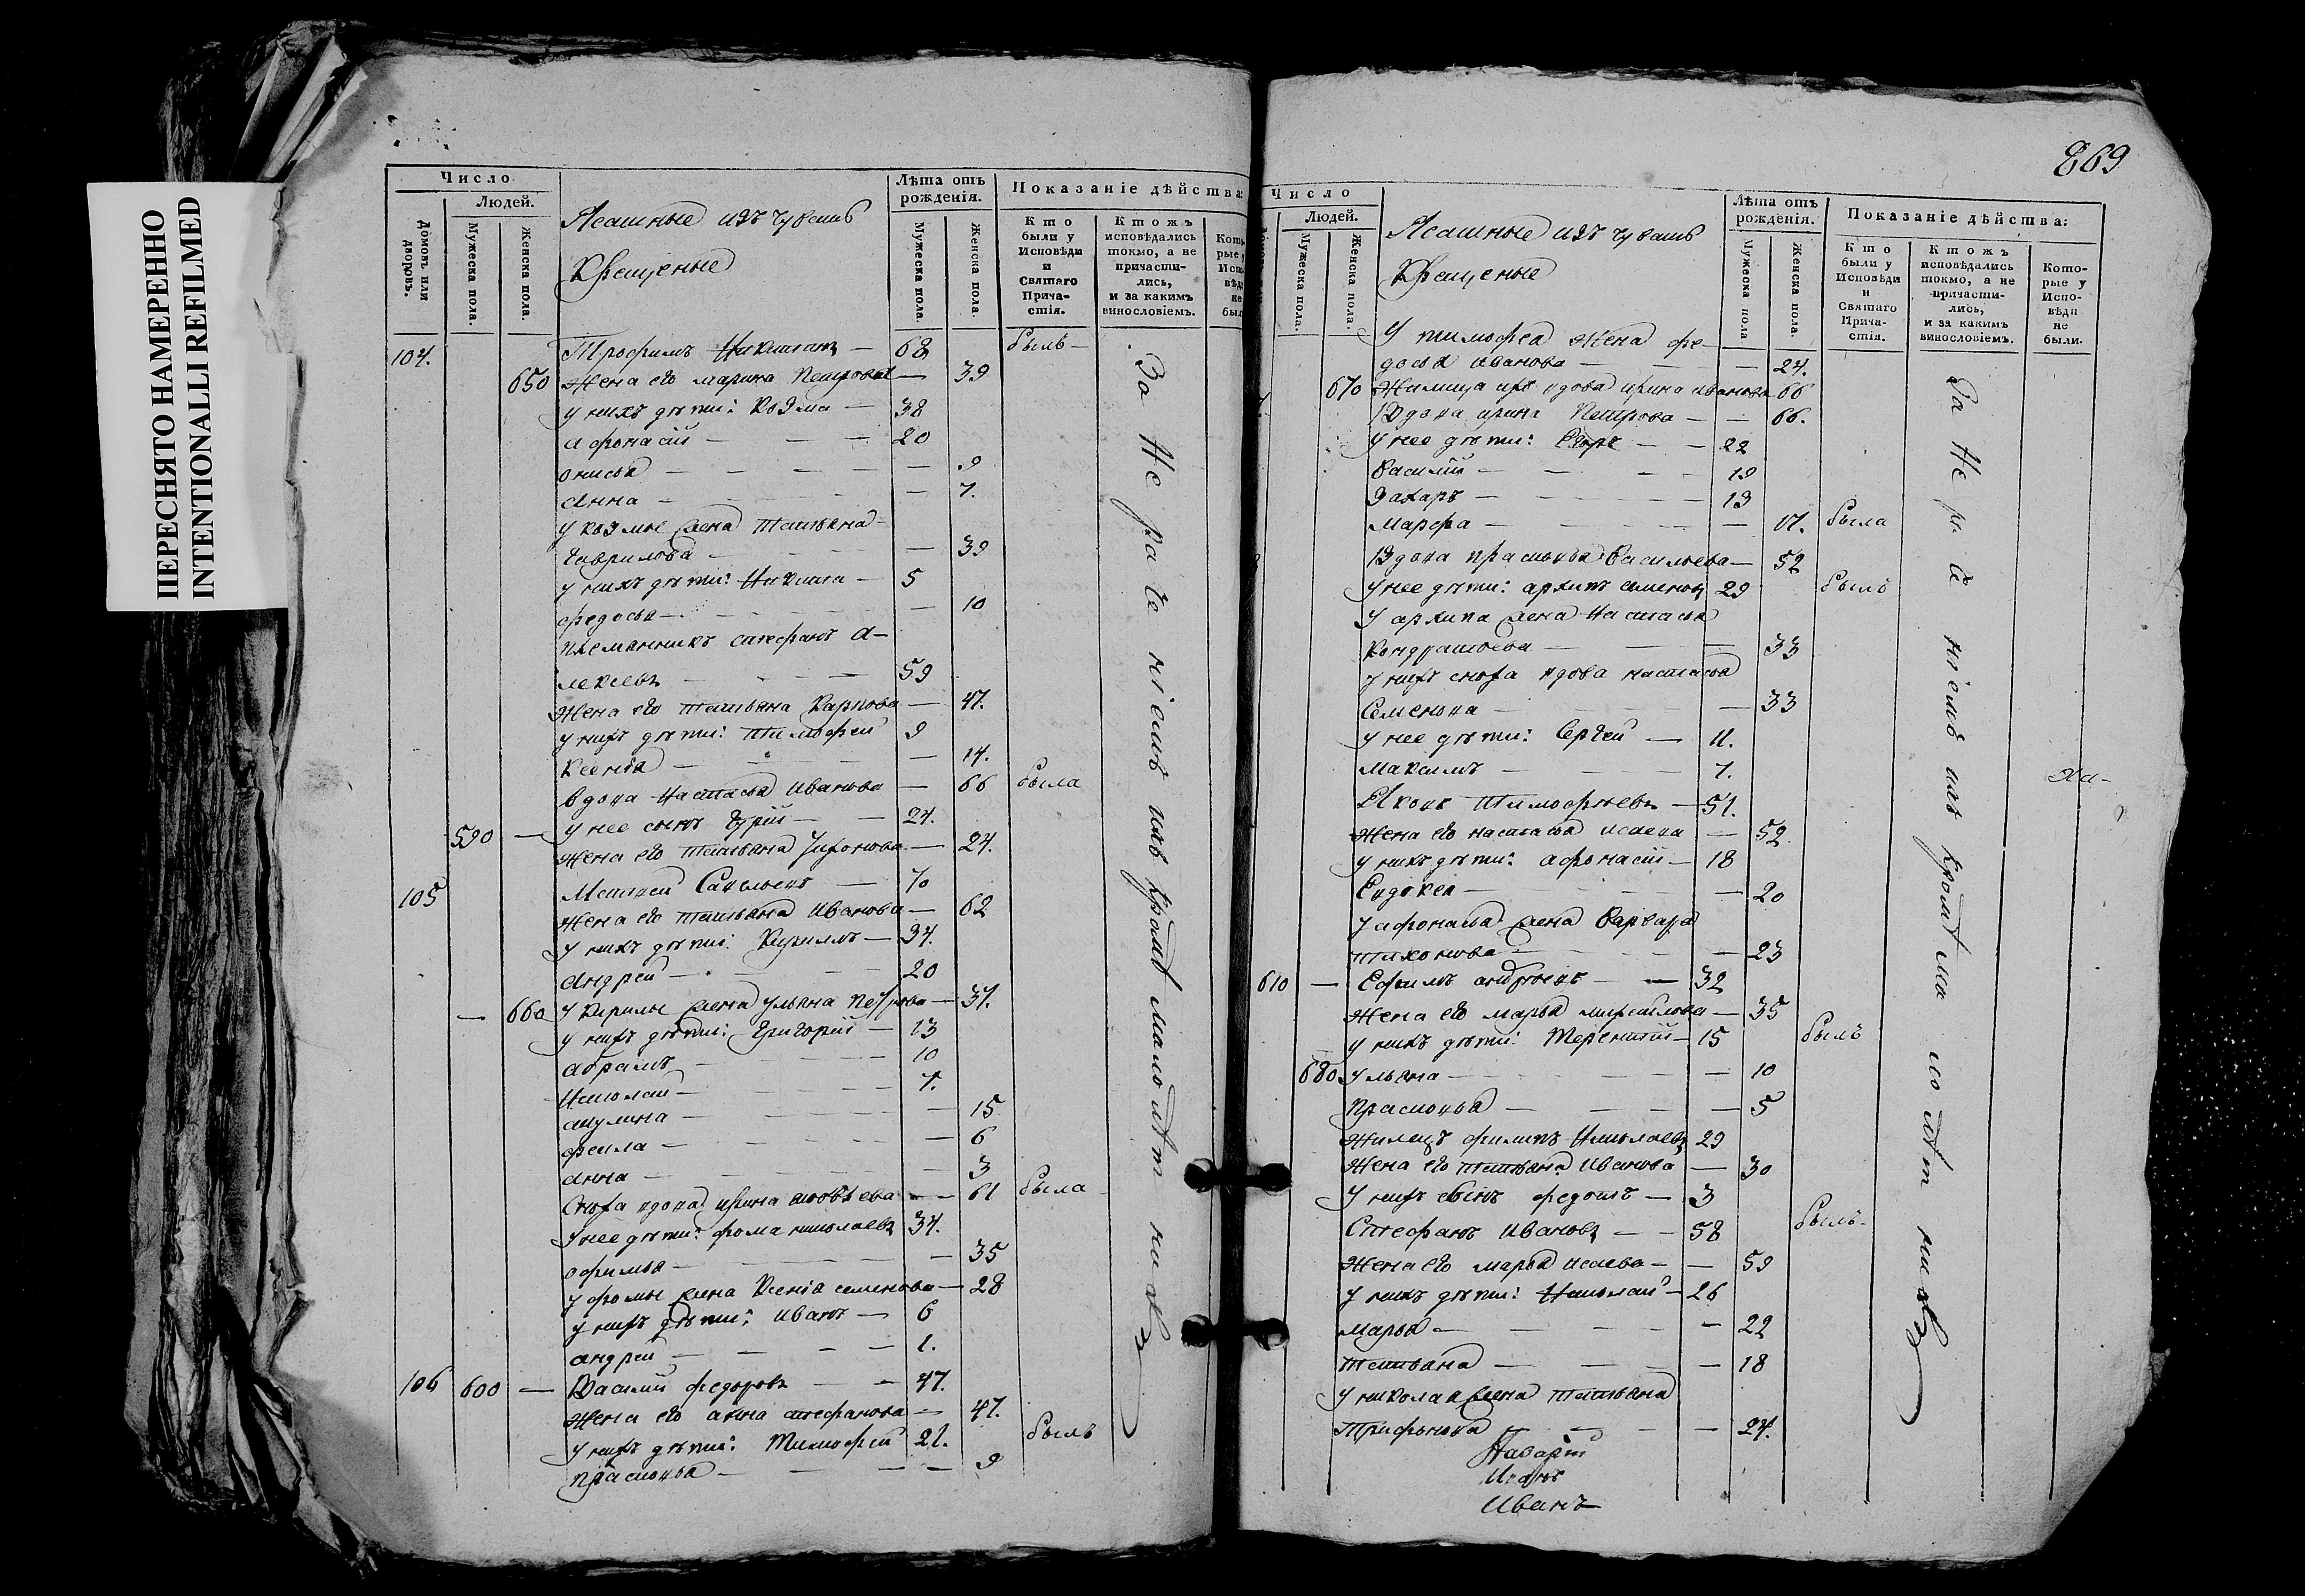 ПЕРЕСНЯТО НАМЕРЕННО
INTENTIONALLI REFILMED
Число
Людей.
Домовъ или дворовъ.
Мужеска пола.
Женска пола.
Ясашные изъ чувашъ
Крещеные
Лѣта отъ рожденія.
Мужеска пола.
Женска пола.
Показаніе дѣйства:
Кто были у Исповѣди и Святаго Прича-стія.
Ктожъ исповѣдались токмо, а не причасти-лись, и за какимъ винословіемъ.
104. Трофимъ Никитинъ — 68 былъ —
650 Жена его марина Петрова — 39
у нихъ дѣти: Козма — 38
афонасій — 20
ониσья — 9
анна — 7.
у козмы жена татьяна
гаврилова — 39
у нихъ дѣти: Никита — 5
федосья — 10
племянникъ стефанъ а-
лексеевъ — 59
Жена его татьяна Карпова — 47.
у нихъ дѣти: тимофей 9
Ксенія — 14.
вдова настасья иванова — 66 была
590 — у нее сынъ гурій — 24.
Жена его татьяна — 24.
105 Матвей Савельевъ — 70
Жена его татьяна иванова — 62
у нихъ дѣти: Кирилъ — 34.
андрей — 20
— 660 у кирилы жена ульяна петрова — 37.
у нихъ дѣти: Григорій — 13
абрамъ — 10
Николай — 7.
акулина — 15
фекла — 6
анна — 3
Сноха вдова ирина — 61 была
у нее дѣти: фома николаевъ 34.
офимья — 35
у фомы жена Ксенія семенова — 28
у нихъ дѣти: иванъ — 6
андрей — 1.
106 600 — Василій федоровъ — 47.
Жена его анна стефанова — 47.
у нихъ дѣти: Тимофей 21. былъ
Прасковья — 9
869
Число
Людей.
Мужеска пола.
Женска пола.
Ясашные изъ чувашъ
Крещеные
Лѣта отъ рожденія.
Мужеска пола
Женска пола.
Показаніе дѣйства:
Кто были у Исповѣди и Святаго Прича-стія.
Ктожъ исповѣдались токмо, а не причасти-лись, и за какимъ винословіемъ.
Кото-рые у Испо-вѣди не были.
У тимофея жена фе-
досья иванова — 24.
670 Жилица ихъ вдова ирина иванова 66
Вдова ирина Петрова — 66.
у нее дѣти: — 22
василій — 19
Захаръ — 13
Марфа — 17. была
Вдова прасковья васильева — 52
у нее дѣти: архипъ семеновъ 29 былъ
У архипа жена настасья
Кондратьева — 33
у нихъ сноха вдова настасья
Семенова — 33
у нее дѣти: Сергей — 11.
Максимъ — 7.
Яковъ Тимофѣевъ — 51.
Жена его настасья исаева — 52
у нихъ дѣти: афонасій — 18
Евдокея — 20
у афонасья жена варвара
тихонова — 23
610 — Ефимъ андрѣевъ — 32
Жена его марья михайлова — 35
у нихъ дѣти: Терентій — 15 былъ
680 ульяна — 10
Прасковья — 5
Жилецъ филипъ Николаевъ 29
Жена его татьяна иванова — 30
У нихъ сынъ федотъ — 3
Стефанъ Ивановъ — 58 былъ —
Жена его марья исаева — 59
у нихъ дѣти: Николай — 26
марья — 22
татьяна — 18
у николая жена татьяна
Трифонова — 24.
Иванъ